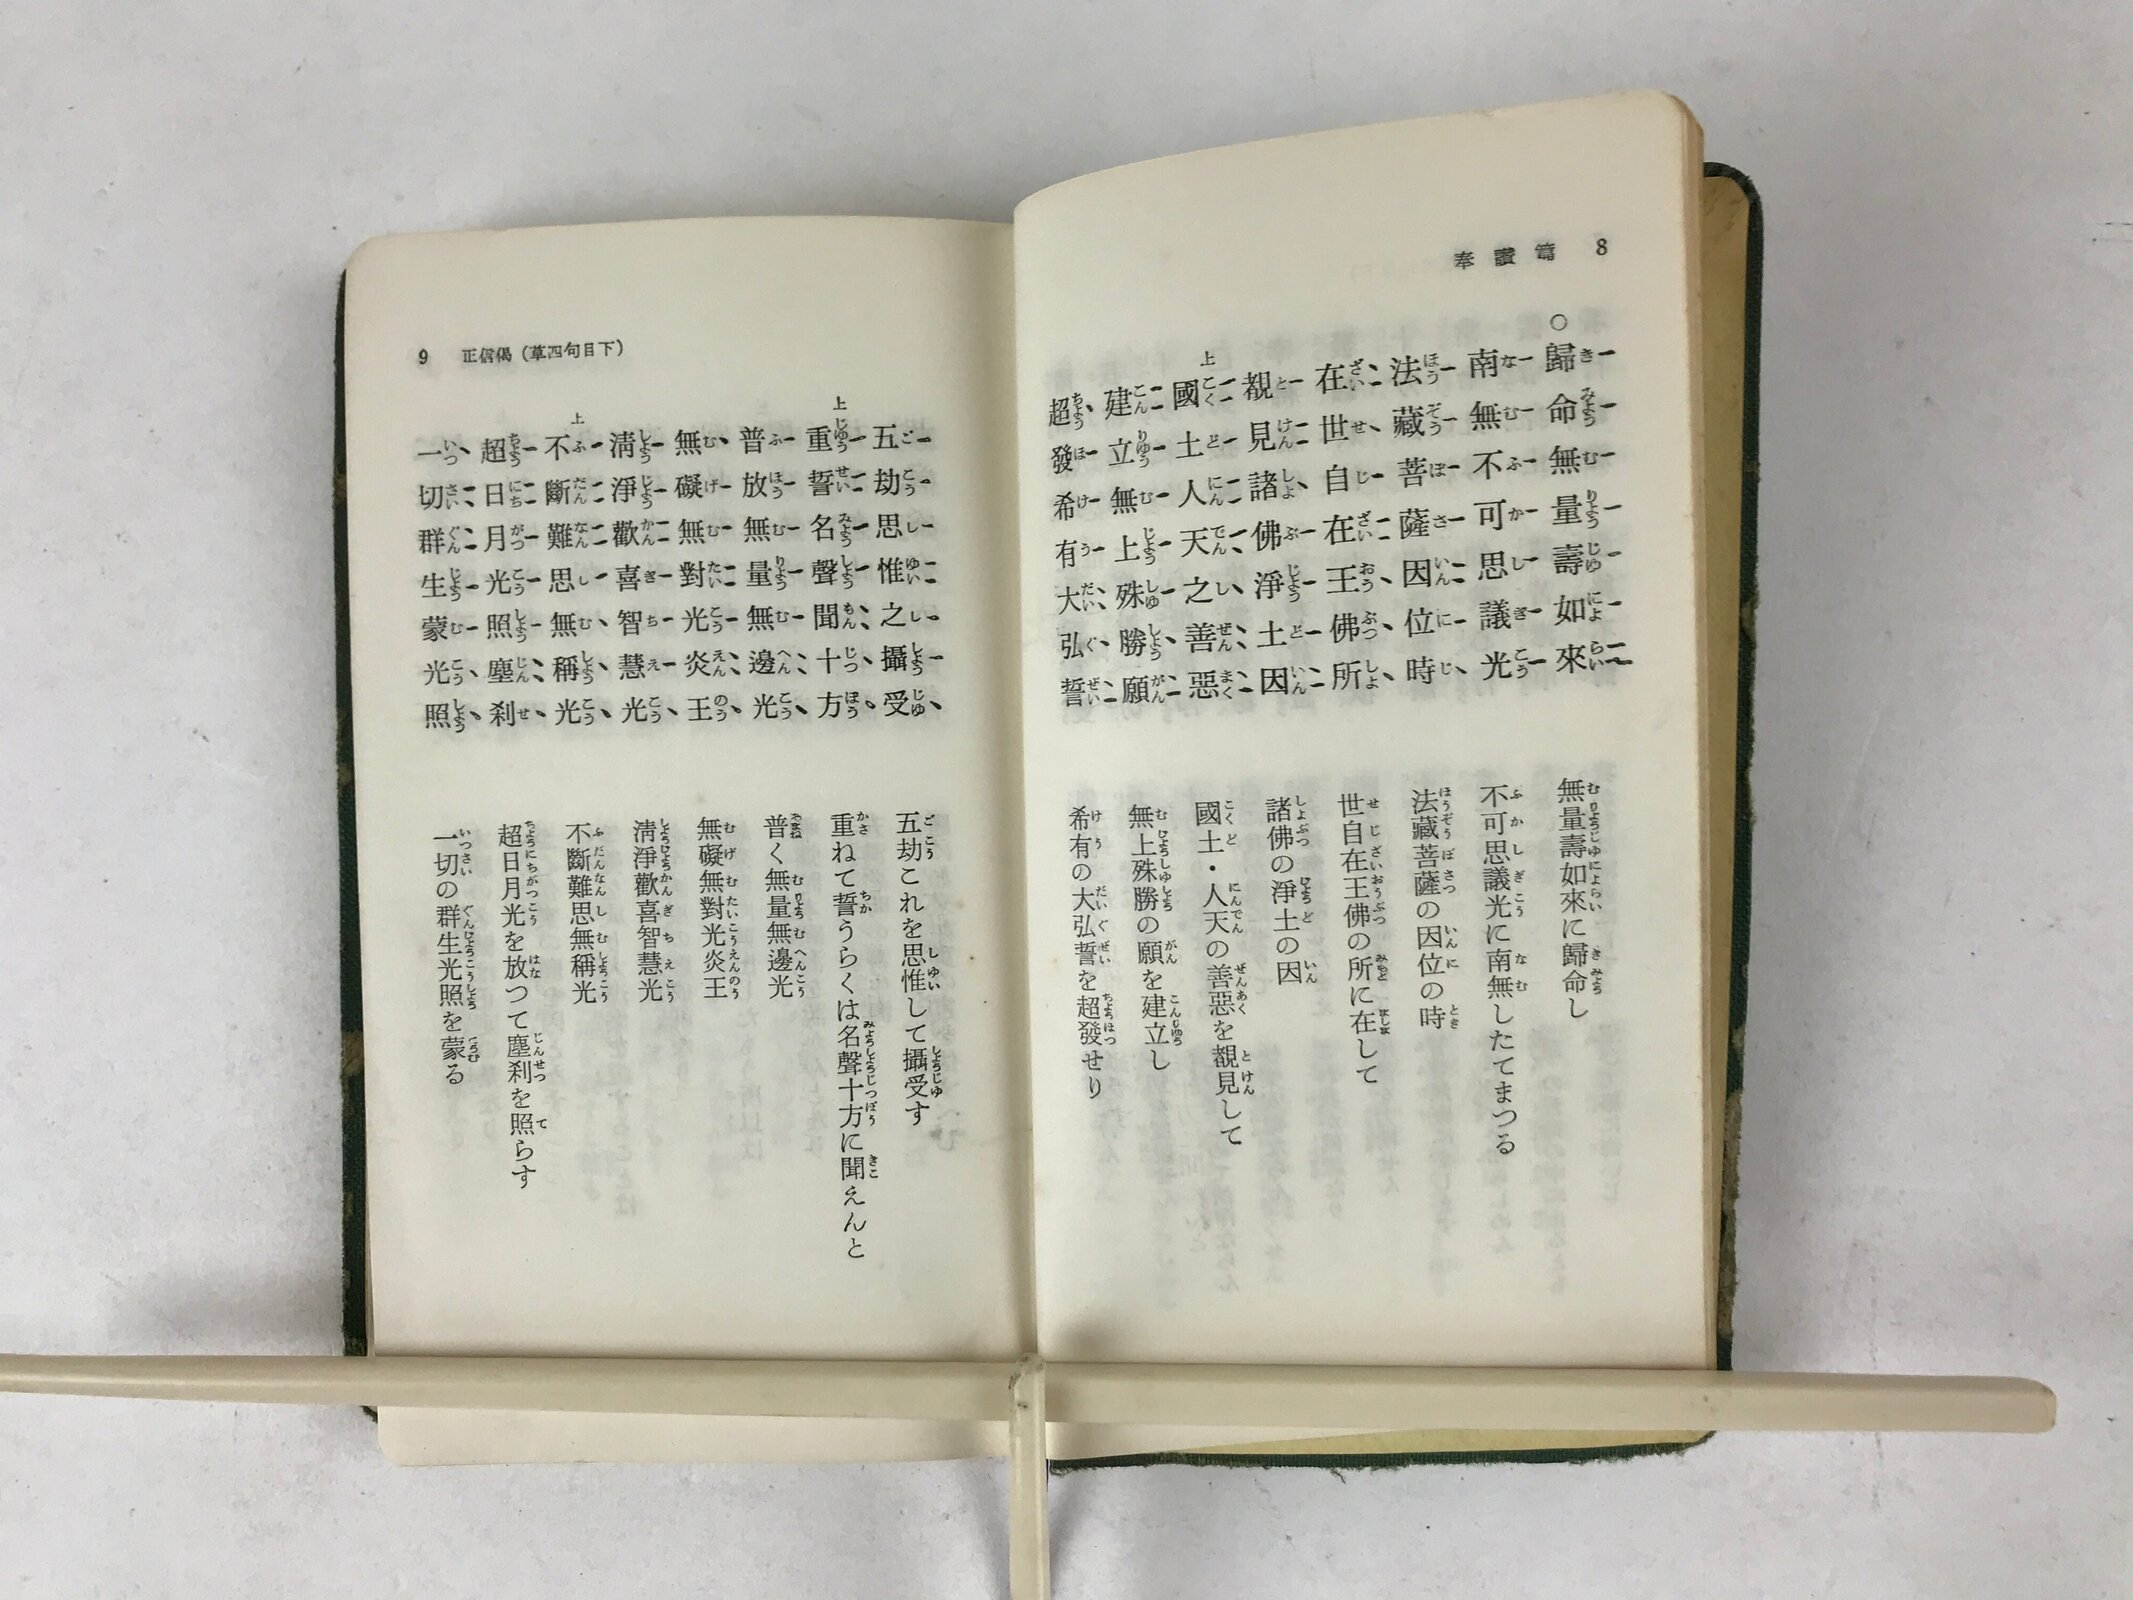 奉讃篇 8
○
歸命無量壽如來
南無不可思議光
法藏菩薩因位時
在世自在王佛所
覩見諸佛淨土因
上
國土人天之善惡
建立無上殊勝願
超發希有大弘誓
無量壽如來に歸命し
不可思議光に南無したてまつる
法藏菩薩の因位の時
世自在王佛の所に在して
諸佛の淨土の因
國土・人天の善惡を覩見して
無上殊勝の願を建立し
希有の大弘誓を超發せり
9 正信偈(草四句目下)
五劫思惟之攝受
上
重誓名聲聞十方
普放無量無邊光
無礙無對光炎王
淸淨歡喜智慧光
上
不斷難思無稱光
超日月光照塵刹
一切群生蒙光照
五劫これを思惟して攝受す
重ねて誓うらくは名聲十方に聞えんと
普く無量無邊光
無礙無對光炎王
淸淨歡喜智慧光
不斷難思無稱光
超日月光を放つて塵刹を照らす
一切の群生光照を蒙る